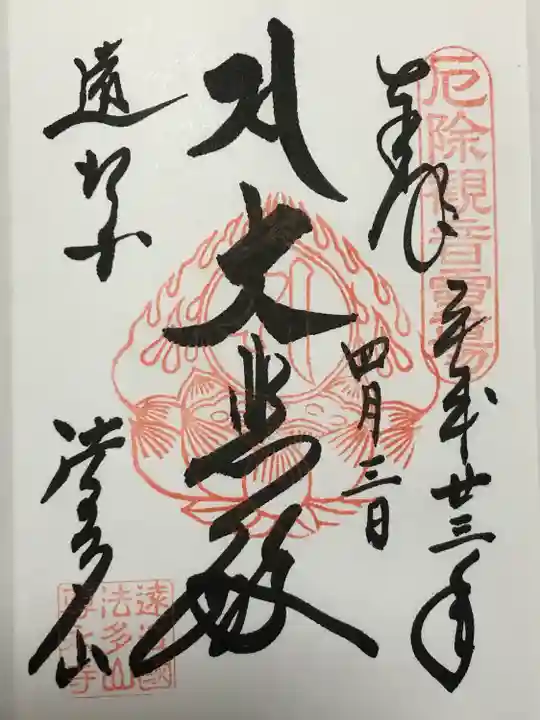 厄除観音霊場
奉拝
平成廿三年
四月三日
大悲殿
遠
法多山
遠江國
法多山
尊永寺